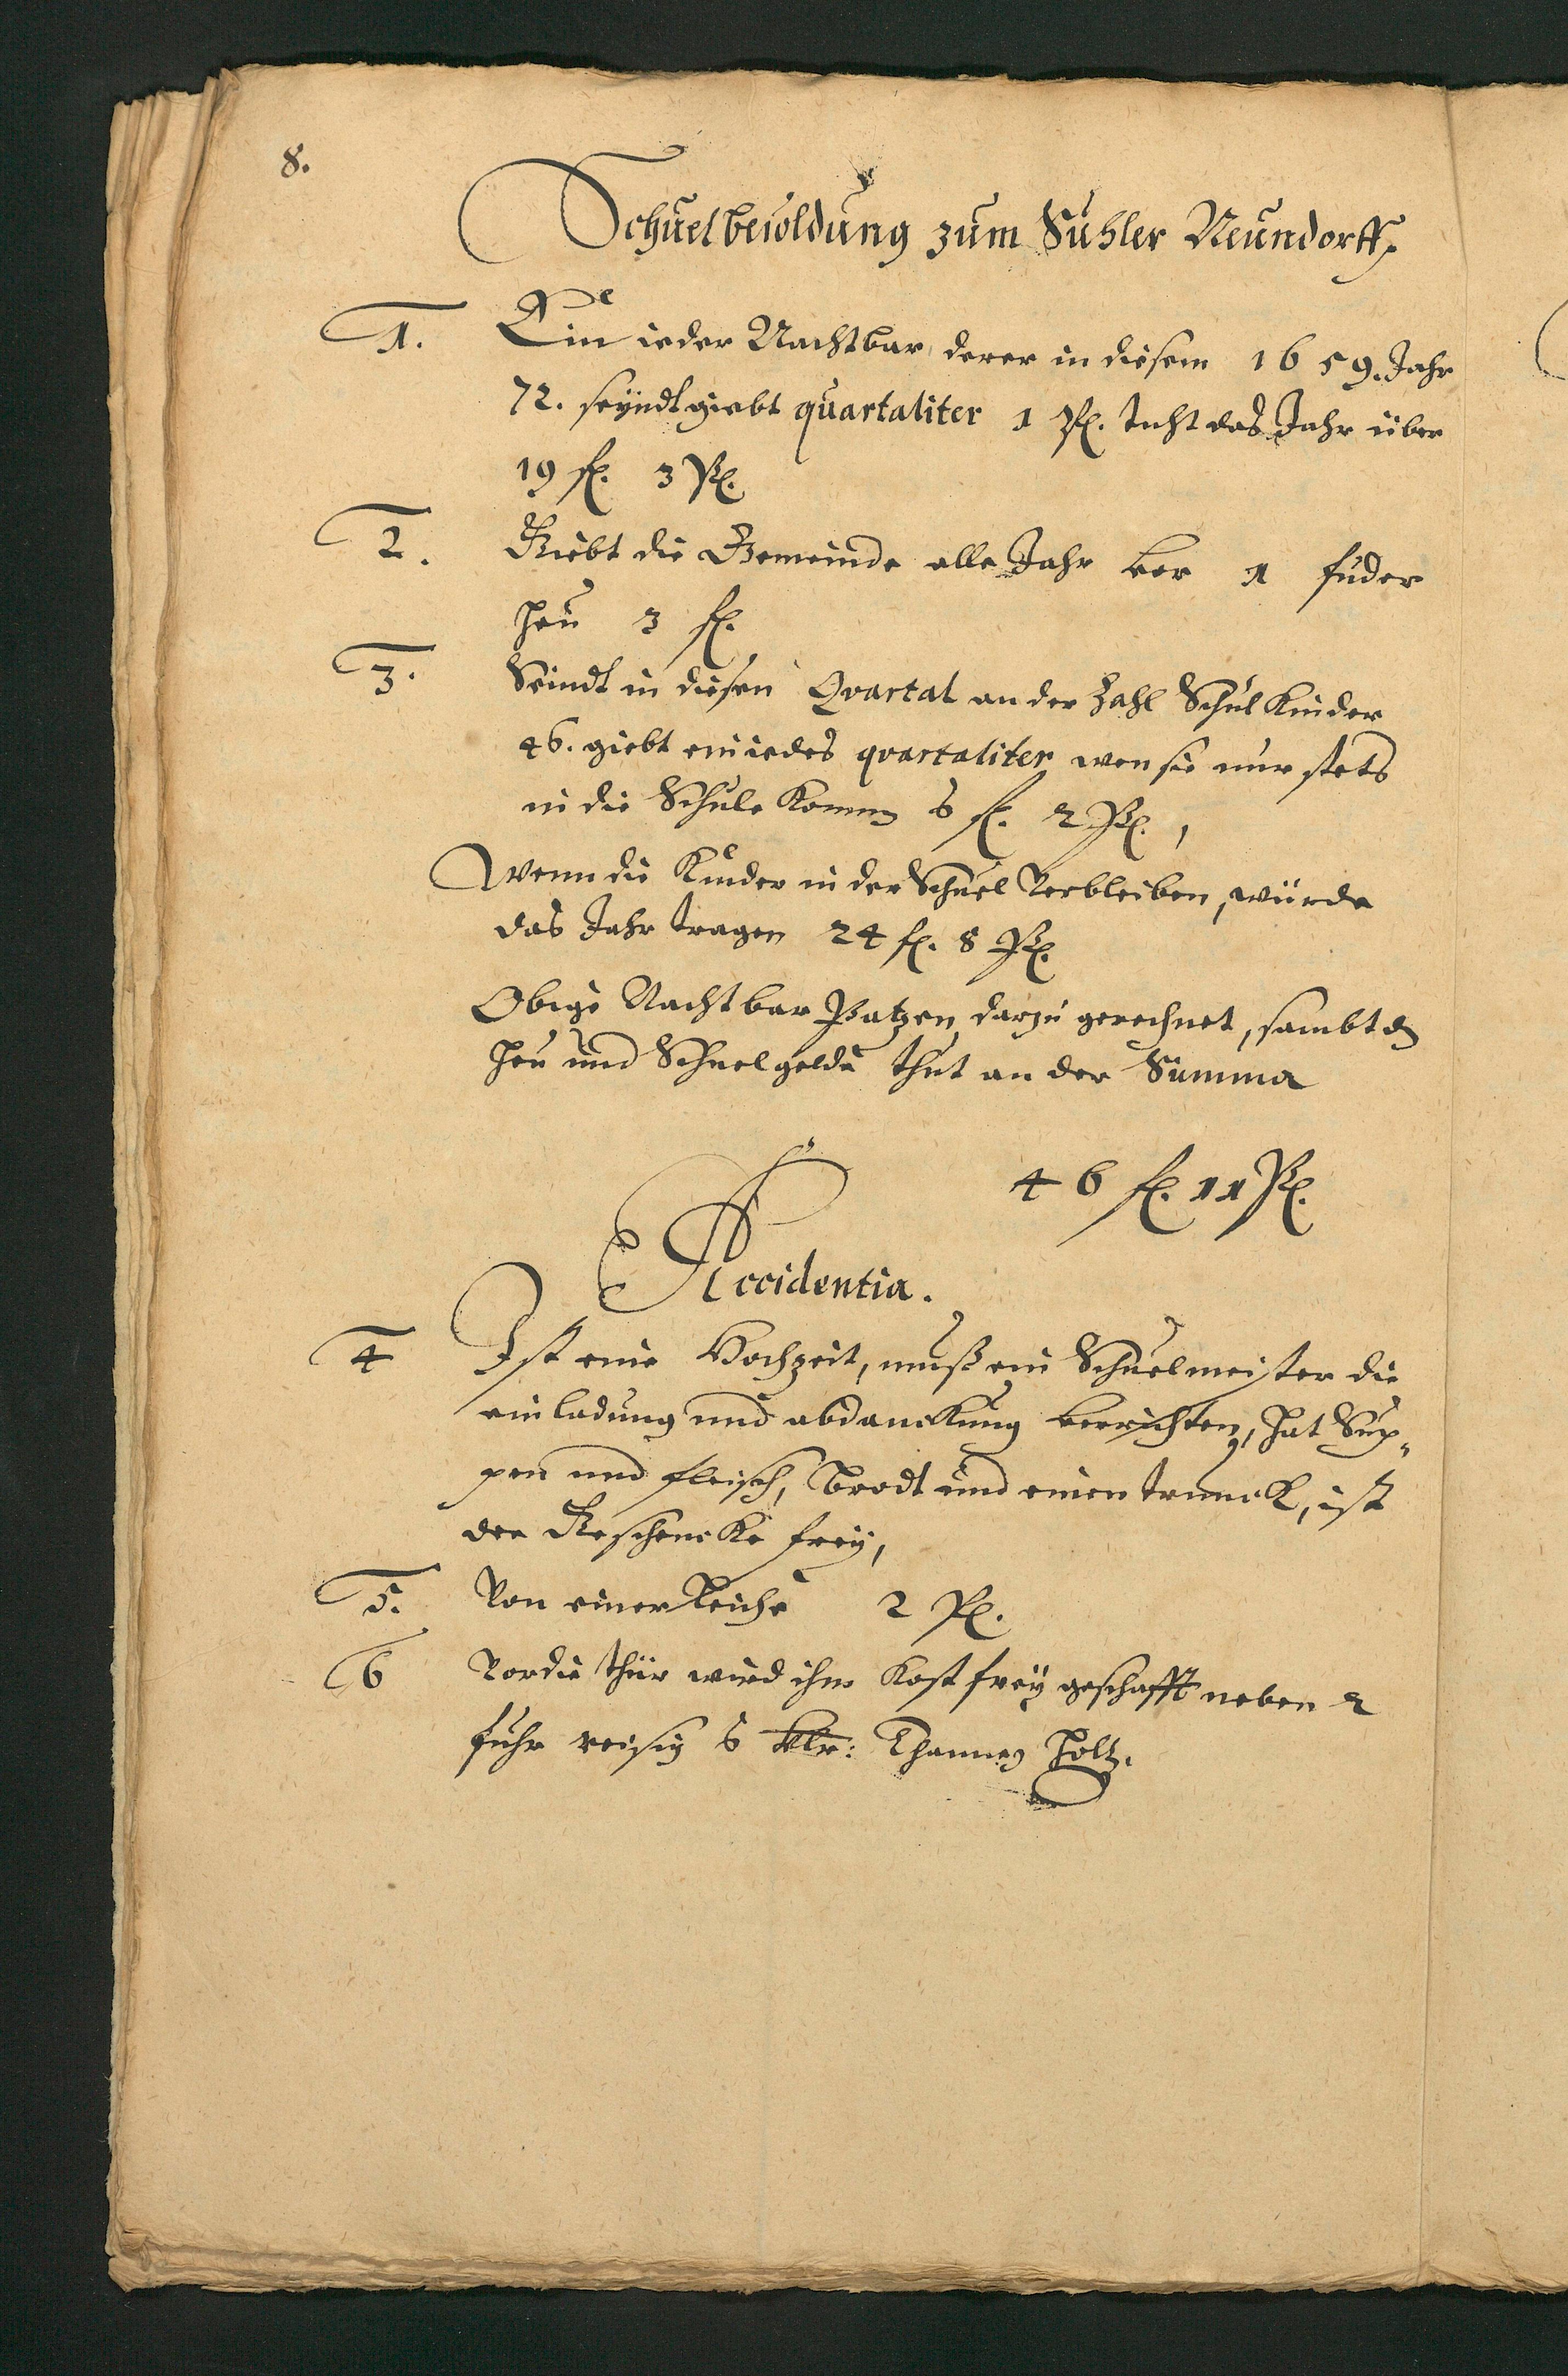 8.
Schuelbesoldung zum Suhler Neundorff
1. Ein ieder Nachtbar, derer in diesem 1659. Jahr
72. seyndt giebt quartaliter 1 Pz. tuht das Jahr über
19 fl. 3 Pz.
2. Giebt die Gemeinde alle Jahr vor 1 fuder
Heu 3 fl.
3. Seindt in diesen Qvartal an der Zahl Schul Kinder
46. giebt ein iedes qvartaliter wen sie nur stets
in die Schule Kommen 6 fl. 2 Pz.,
Wenn die Kinder in der Schuel Verbleiben, würde
das Jahr tragen 24 fl. 8 Pz.
Obige Nachtbar Patzen darzu gerechnet, sambt den
Heu und Schuelgelde thut an der Summa
46 fl. 11 Pz.
Accidentia.
4 Ist eine Hochzeit, muß ein Schuelmeister die
einladung und abdanckung verrichten, hat Sup¬
pen und fleisch, Brodt und einen trunck, ist
der Geschencke frey,
5. Von einer Leiche 2 Pz.
6 Vor die thür wird ihm Kost frey geschafft neben 2
fuhr reisig 6 Klr: Thannen Holtz.